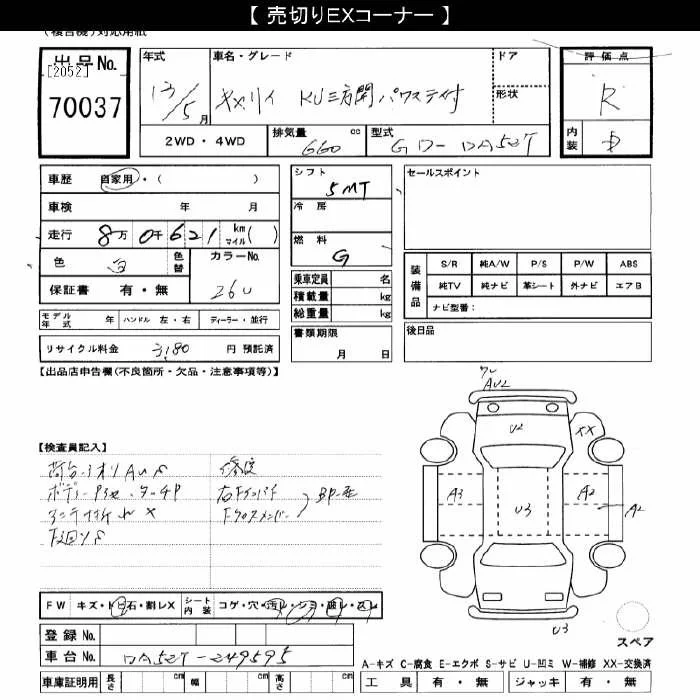 【 売切りEXコーナー 】
出品No.
[2052]
70037
年式
13/5月
車名・グレード
キャリイ KU三方開 パワステ付
ドア
形状
評価点
R
内装
D
2WD・4WD
排気量 660 cc
型式 GD-DA52T
車歴 自家用・( )
車検 年 月
走行 8万0千621 km マイル( )
色 白 色替
カラーNo. 26U
保証書 有・無
モデル年式 年 ハンドル 左・右 ディーラー・並行
リサイクル料金 円 預託済
シフト 5MT
冷房
燃料 G
乗車定員 名
積載量 kg
総重量 kg
書類期限
月 日
セールスポイント
装備品
S/R 純A/W P/S P/W ABS
純TV 純ナビ 革シート 外ナビ エアB
ナビ型番:
後日品
【出品店申告欄(不良箇所・欠品・注意事項等)】
【検査員記入】
AU2
U2
XX
A3
U3
A2
A2
U3
スペア
FW キズ・トビ石・割レX シート内装 コゲ・穴・汚レ・シミ・破レ・スレ
登録No.
車台No. DA52T-249595
車庫証明用 長さ cm 幅 cm 高さ cm
A-キズ C-腐食 E-エクボ S-サビ U-凹ミ W-補修 XX-交換済
工具 有・無 ジャッキ 有・無